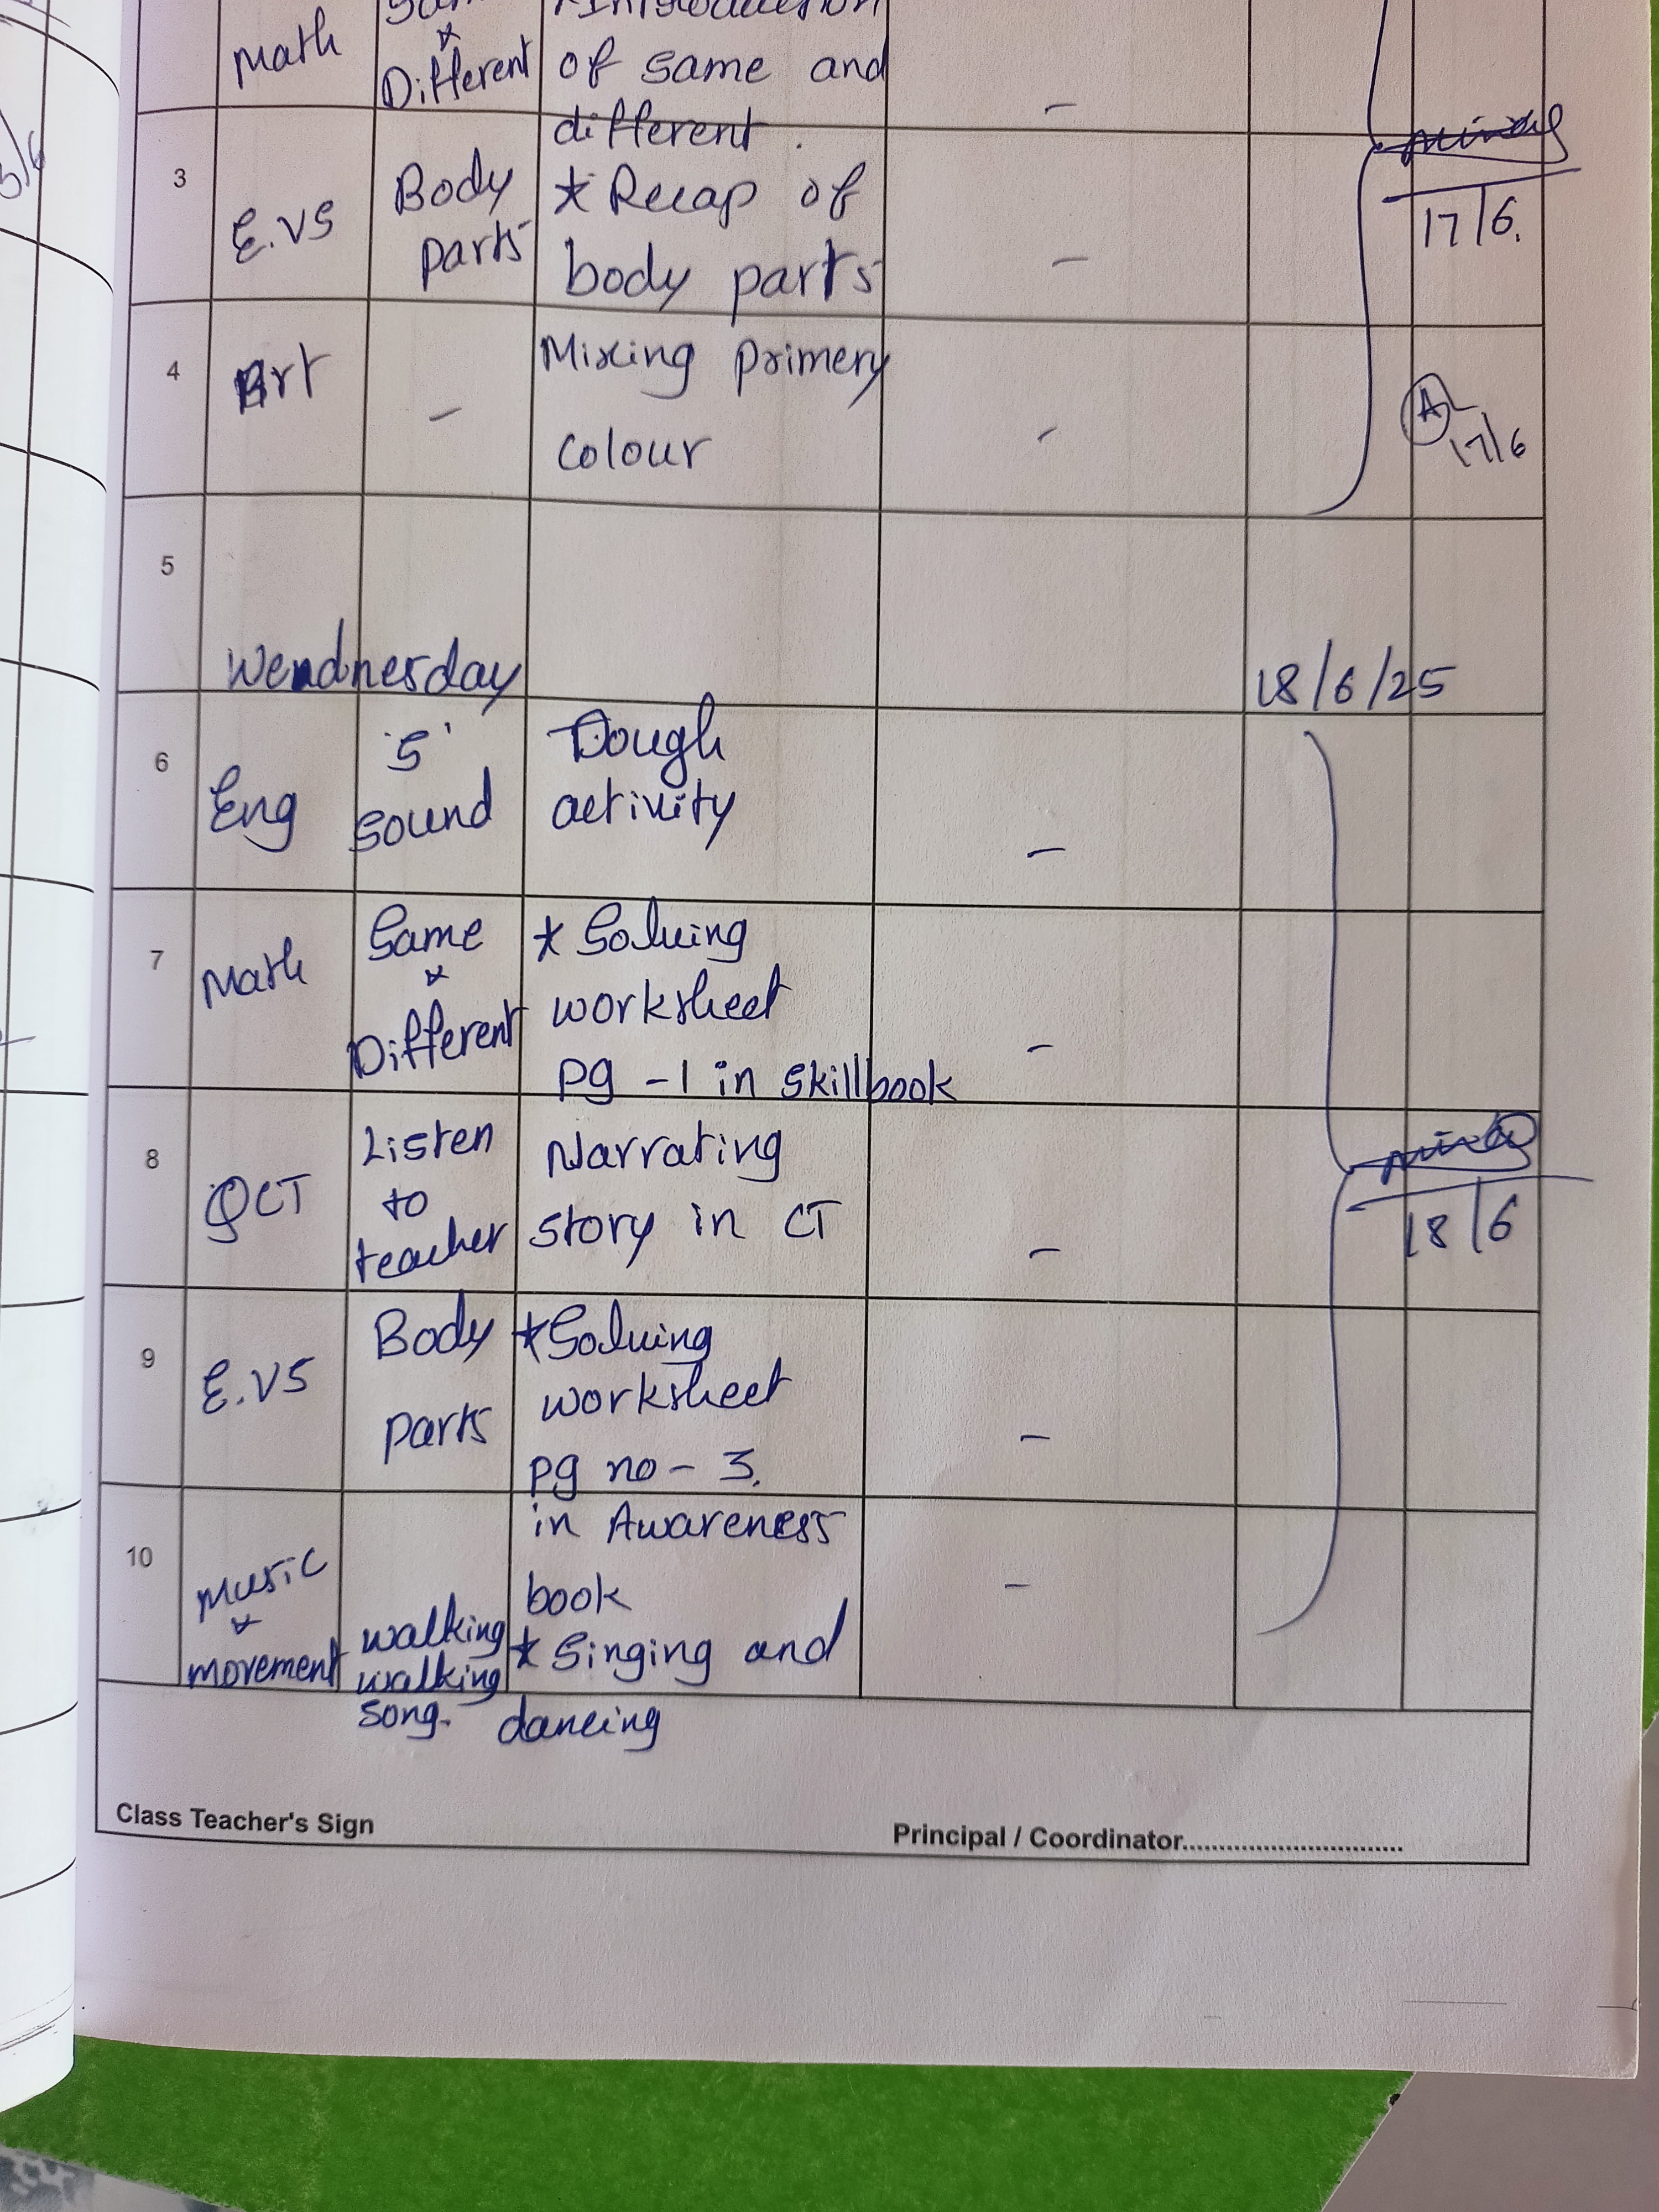 of same and
Math
Different
different.
3
E.VS
Body
parts
* Recap of
body parts
17/6.
4
Art
-
Mixing primery
colour
-
A
17/6
5
Wendnesday
18/6/25
6
Eng
's'
sound
Dough
activity
-
7
Math
Same
&
Different
* Solving
worksheet
pg -1 in skillbook
-
8
QCT
Listen
to
teacher
Narrating
story in CT
-
18/6
9
E.VS
Body
parts
* Solving
worksheet
pg no - 3.
in Awareness
book
-
10
Music
&
movement
walking
walking
song.
* Singing and
dancing
-
Class Teacher's Sign
Principal / Coordinator..............................